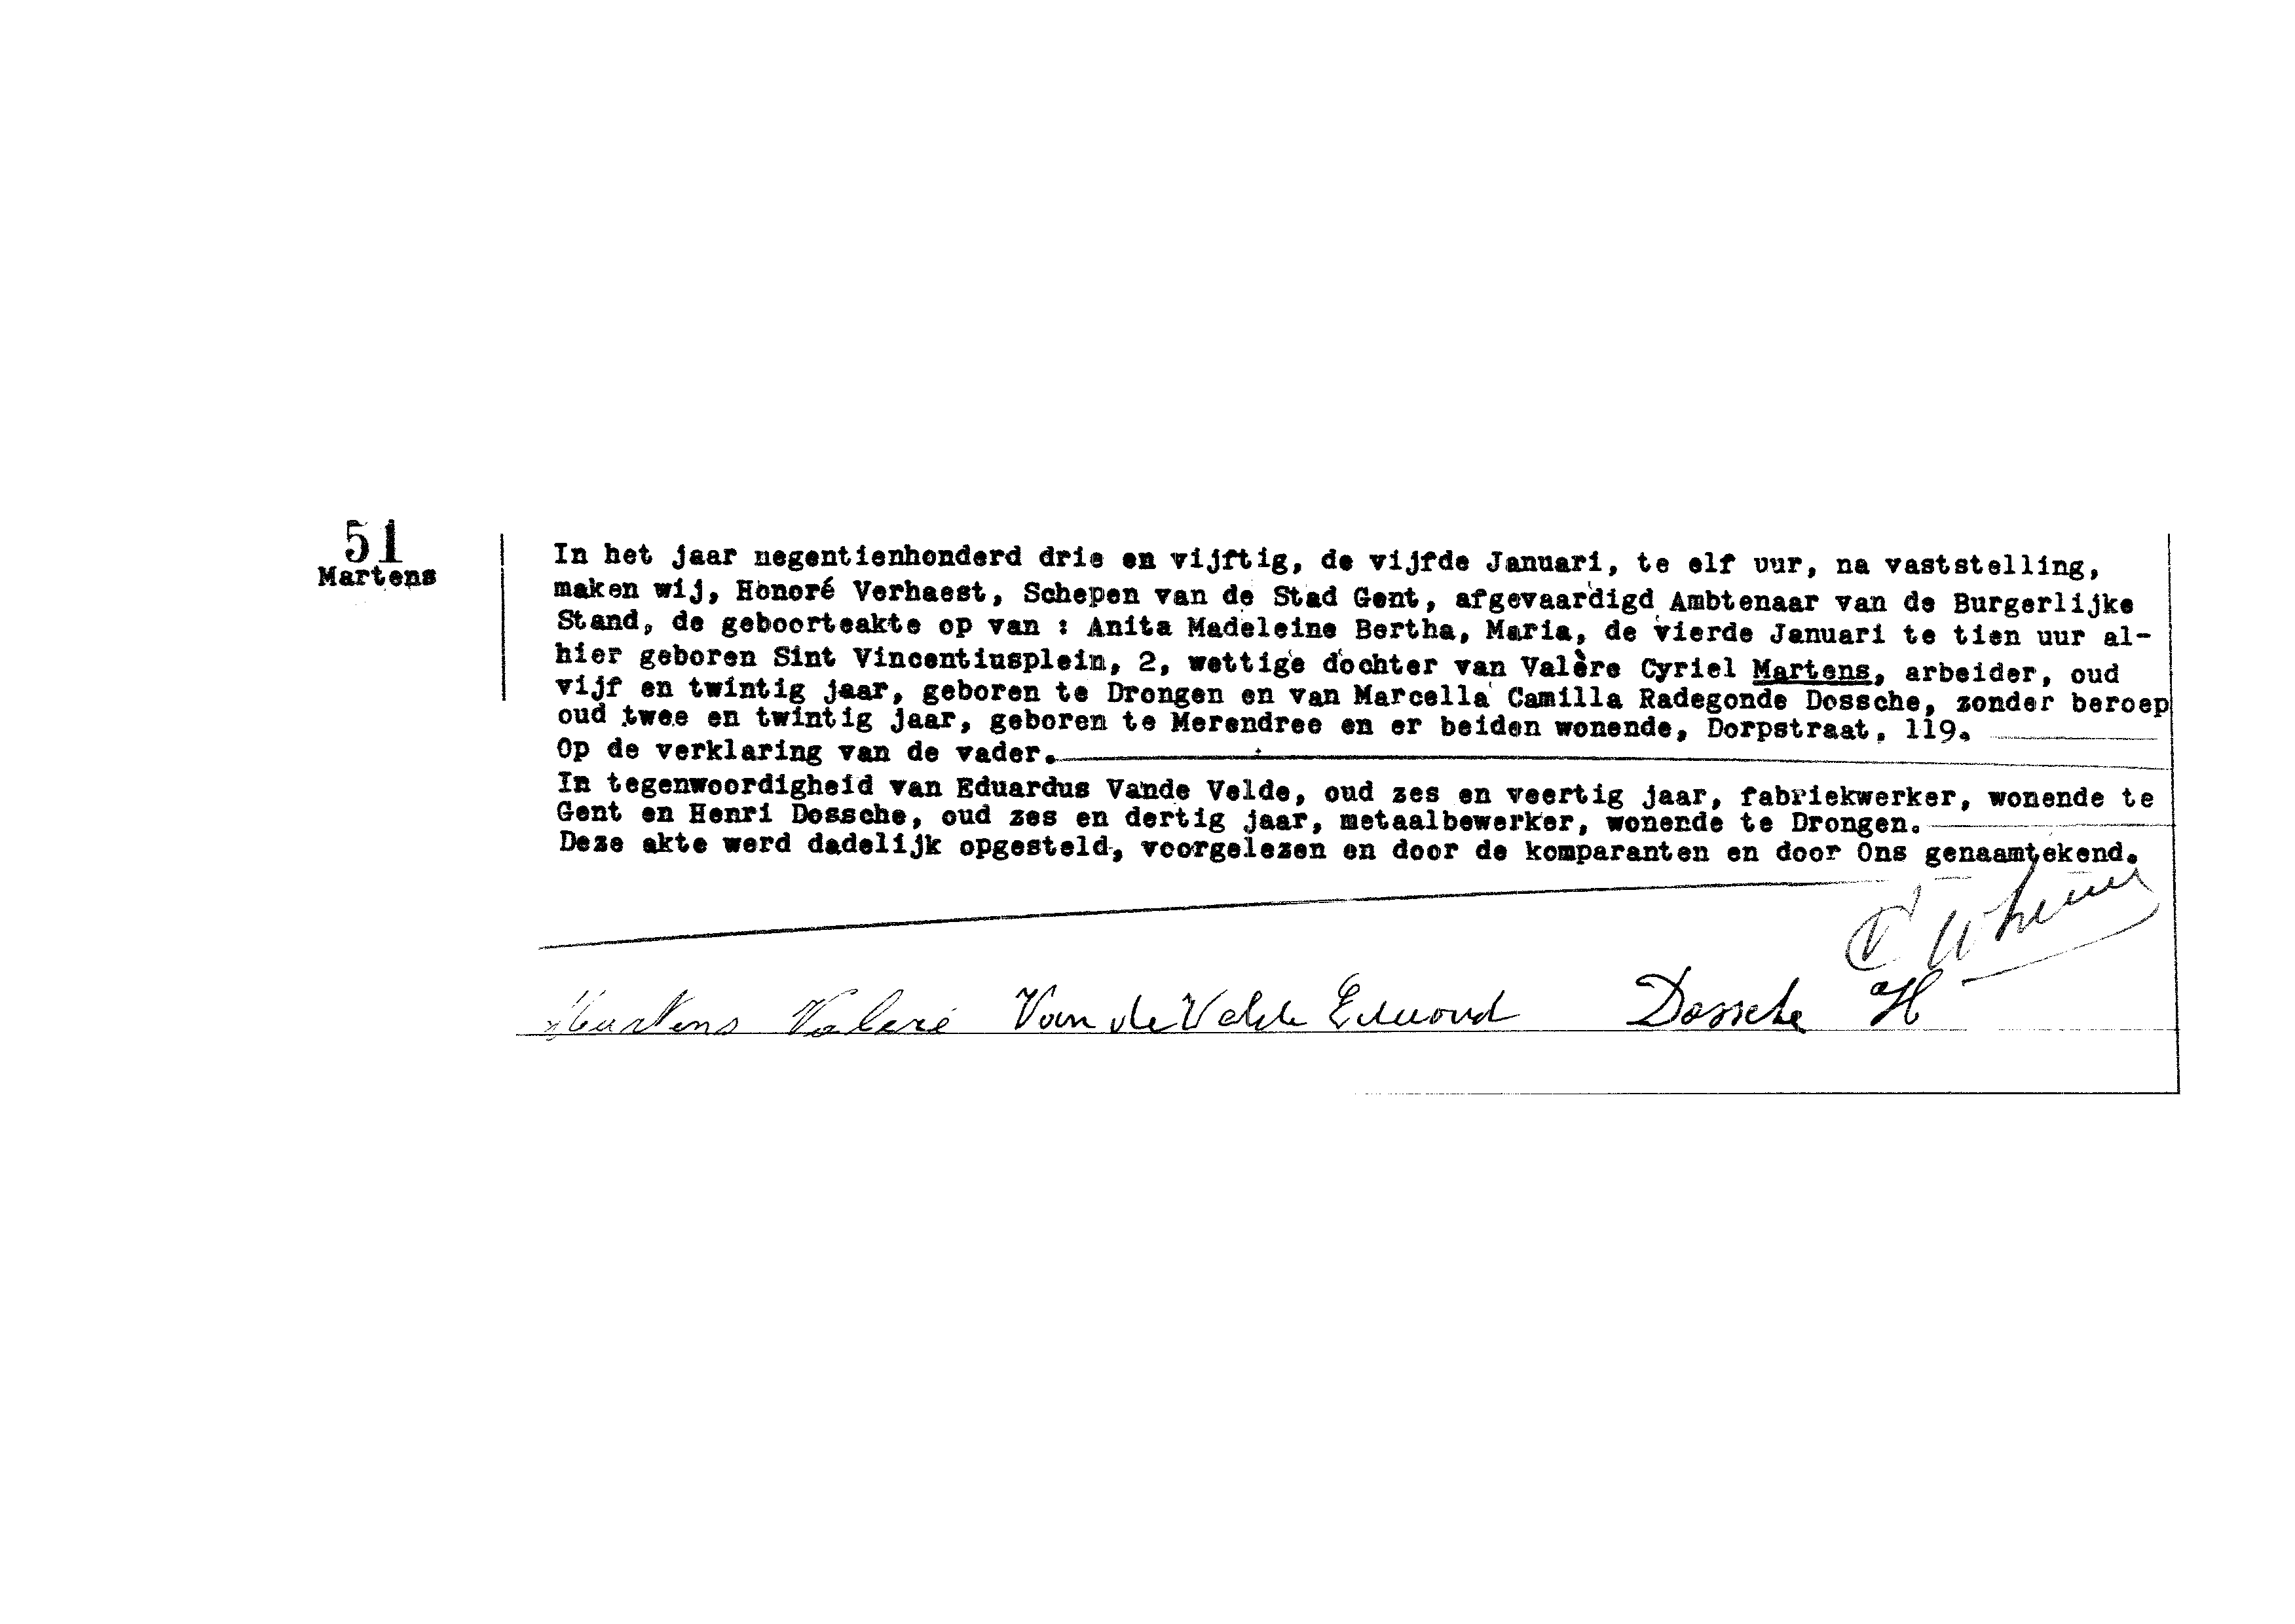 51
Martens
In het jaar negentienhonderd drie en vijftig, de vijfde Januari, te elf uur, na vaststelling,
maken wij, Honoré Verhaest, Schepen van de Stad Gent, afgevaardigd Ambtenaar van de Burgerlijke
Stand, de geboorteakte op van : Anita Madeleine Bertha, Maria, de vierde Januari te tien uur al-
hier geboren Sint Vincentiusplein, 2, wettige dochter van Valère Cyriel Martens, arbeider, oud
vijf en twintig jaar, geboren te Drongen en van Marcella Camilla Radegonde Dossche, zonder beroep
oud twee en twintig jaar, geboren te Merendree en er beiden wonende, Dorpstraat, 119.
Op de verklaring van de vader.
In tegenwoordigheid van Eduardus Vande Velde, oud zes en veertig jaar, fabriekwerker, wonende te
Gent en Henri Dossche, oud zes en dertig jaar, metaalbewerker, wonende te Drongen.
Deze akte werd dadelijk opgesteld, voorgelezen en door de komparanten en door Ons genaamtekend.
Martens Valeré Van de Velde Edward Dossche H